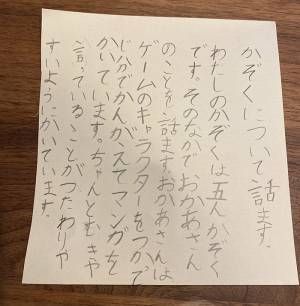 かぞくについて話ます。
わたしのかぞくは五人かぞく
です。そのなかでおかあさん
のことを話ます。おかあさんは
ゲームのキャラクターをつかて
じぶでかんがえてマンガを
かいています。ちゃんとむきや
言っていることがつたわりや
すいようにかいています。